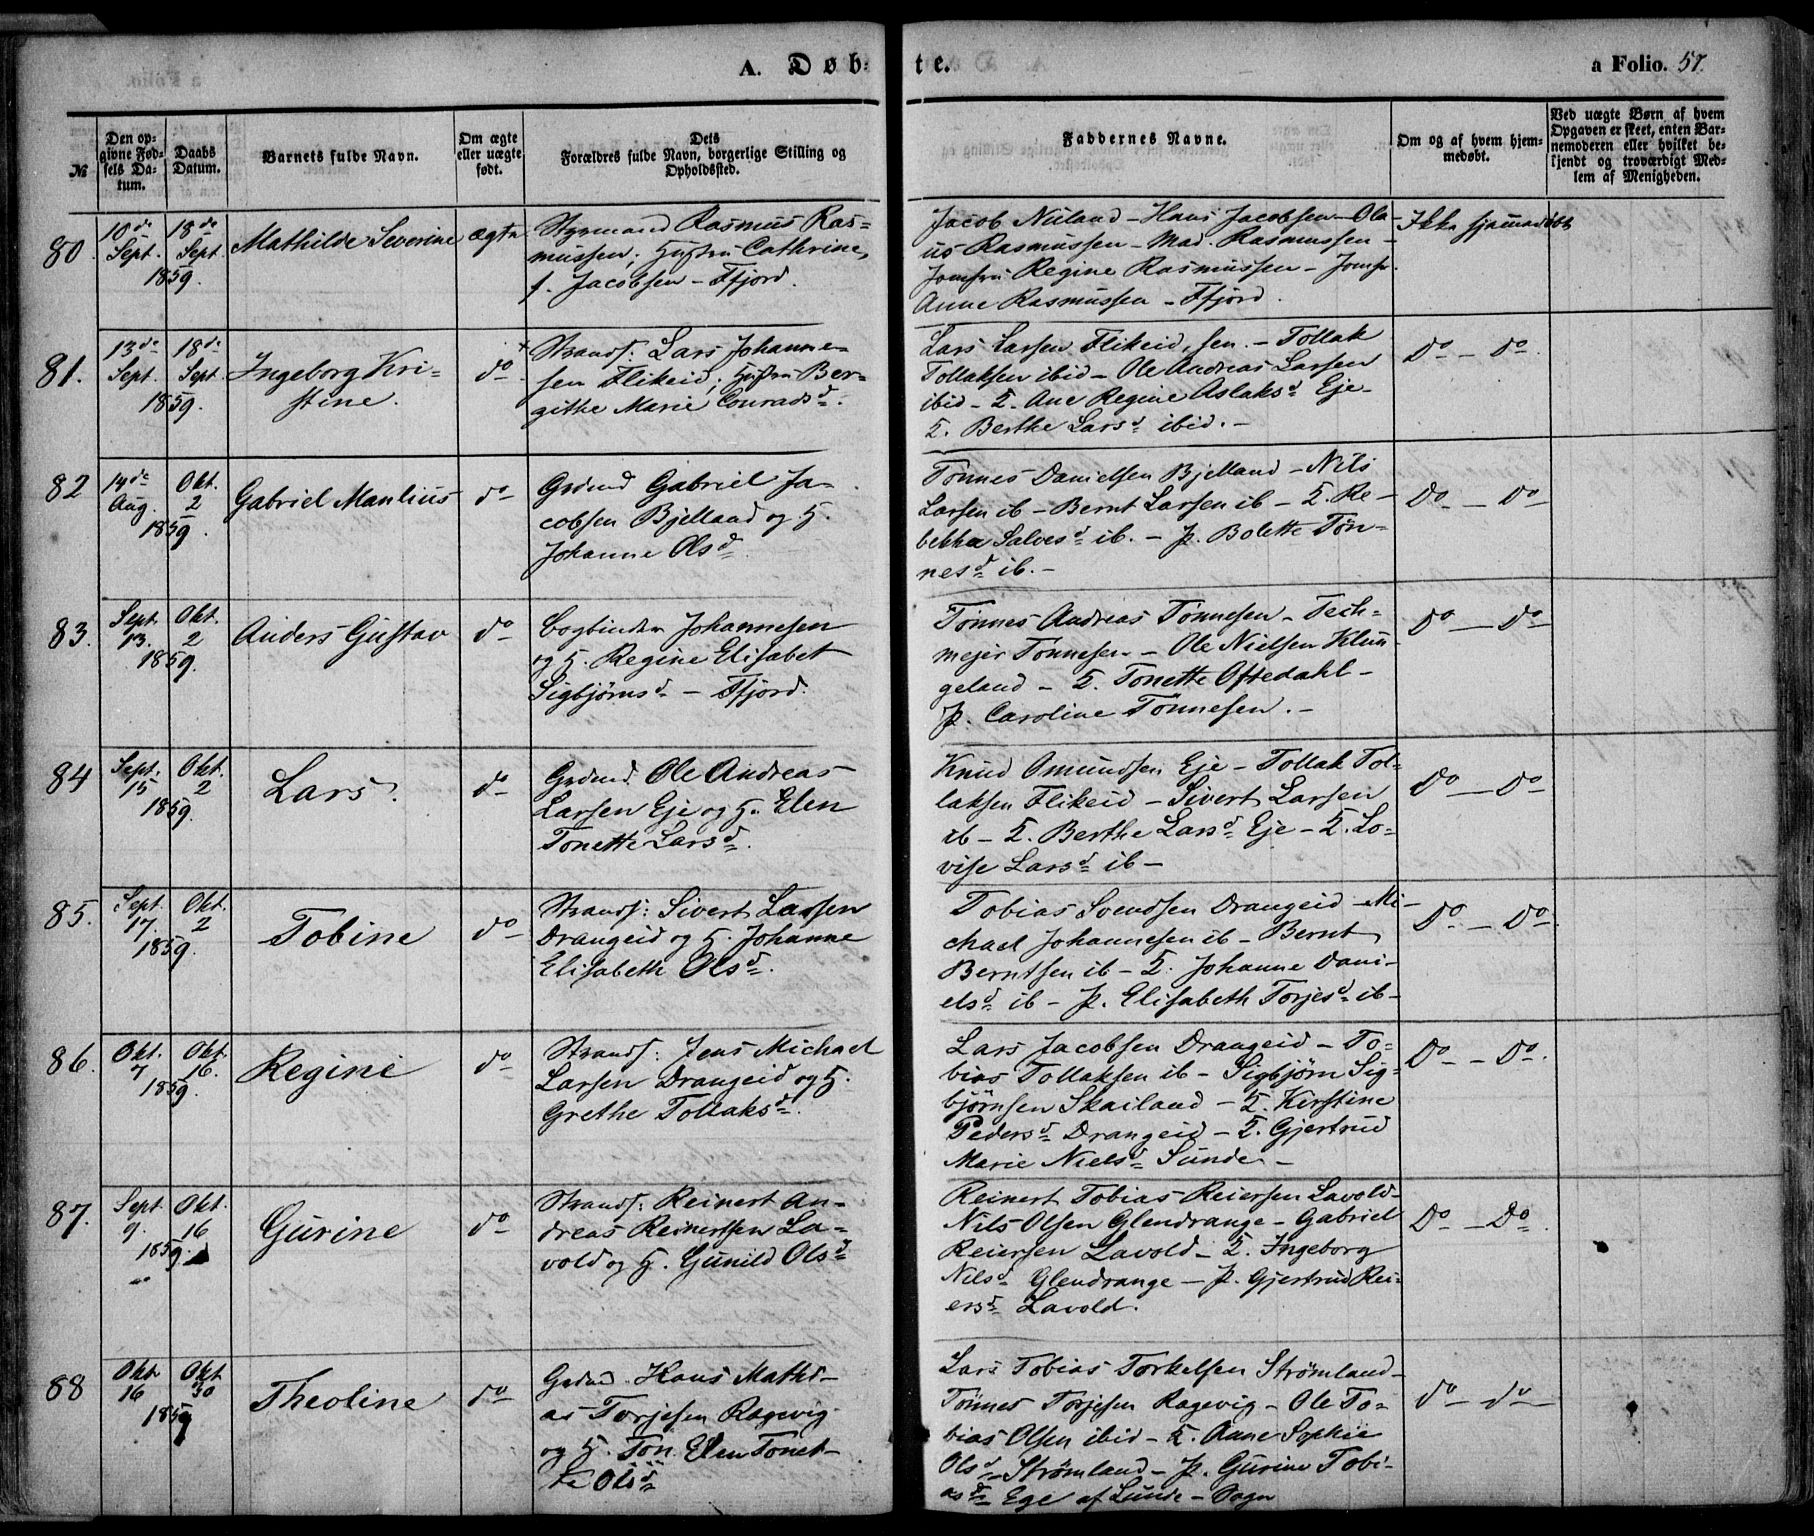 A. Døb-
te.
a Folio. 57.
№
Den op-
givne Fød-
sels Da-
tum.
Daabs
Datum.
Barnets fulde Navn.
Om ægte
eller uægte
født.
Dets
Forældres fulde Navn, borgerlige Stilling og
Opholdssted.
Faddernes Navne.
Om og af hvem hjem-
medøbt.
Ved uægte Børn af hvem
Opgaven er skeet, enten Bar-
nemoderen eller hvilket be-
kjendt og troværdigt Med-
lem af Menigheden.
80.
10de
Sept.
18de
Sept.
1859.
Mathilde Severine
ægte
Styrmand Rasmus Ras-
mussen; Hustru Cathrine,
f. Jacobsen – Ffjord.
Jacob Nuland – Hans Jacobsen – Ola-
us Rasmussen – Mad. Rasmussen –
Jomfru Regine Rasmussen – Jomfr.
Anne Rasmussen – Ffjord.
Ikke hjemmedøbt
81.
13de
Sept.
18de
Sept.
1859.
Ingeborg Kri-
stine.
do
Strands: Lars Johanne-
sen Flikeid; Hustru Ber-
githe Marie Conradsd.
Lars Larsen Flikeid, sen. – Tollak
Tollaksen ibid – Ole Andreas Larsen
ibid – K. Ane Regine Aslaksd Eje –
K. Berthe Larsd ibid. –
Do – do.
82
14de
Aug.
Okt.
2
1859
Gabriel Manlius
do
Grdmd Gabriel Ja-
cobsen Bjelland og H.
Johanne Olsd.
Tønnes Danielsen Bjelland – Nils
Larsen ib – Bernt Larsen ib – K. Re-
bekka Salvesd ib. – P. Bolette Tøn-
nesd ib. –
Do – Do
83.
Sept.
13.
Okt.
2
1859.
Anders Gustav
do
Bogbinder Johannesen
og H. Regine Elisabet
Sigbjørnsd – Ffjord.
Tønnes Andreas Tønnesen – Tech-
mejer Tønnesen – Ole Nielsen Klun-
geland – K. Tonette Oftedahl –
P. Caroline Tønnesen. –
Do – Do.
84
Sept.
15
Okt.
2
1859.
Lars.
do
Grdmd. Ole Andreas
Larsen Eje og H. Elen
Tonette Larsd.
Knud Omundsen Eje – Tollak Tol-
laksen Flikeid – Sivert Larsen
ib – K. Berthe Larsd Eje – K. Lo-
vise Larsd ib –
Do – Do
85.
Sept.
17.
Okt.
2
1859.
Tobine
do
Strands: Sivert Larsen
Drangeid og H. Johanne
Elisabeth Olsd.
Tobias Svendsen Drangeid – Mi-
chael Johannesen ib – Bernt
Berntsen ib – K. Johanne Dani-
elsd ib – P. Elisabeth Torjesd ib –
Do. – Do.
86.
Okt.
7
Okt.
16.
1859.
Regine
do
Strands: Jens Michael
Larsen Drangeid og H.
Grethe Tollaksd.
Lars Jacobsen Drangeid – To-
bias Tollaksen ib – Sigbjørn Sig-
bjørnsen Skailand – K. Kirstine
Pedersd Drangeid – K. Gjertrud
Marie Nielsd Sunde. –
Do – Do.
87.
Sept.
9.
Okt.
16
1859.
Gurine
do
Strands: Reinert An-
dreas Reinertsen La-
vold og H. Gunild Olsd
Reinert Tobias Reiersen Lavold –
Nils Olsen Glendrange – Gabriel
Reiersen Lavold – K. Ingeborg
Nilsd Glendrange – P. Gjertrud Rei-
ersd Lavold.
Do – Do.
88
Okt
16
Okt
30
1859
Theoline
do
Grdmd. Hans Mathi-
as Torjesen Ragevig
og H. Ton. Elen Tonet-
te Olsd
Lars Tobias Torkelsen Strømland –
Tønnes Torjesen Ragevig – Ole To-
bias Olsen ibid – K. Anne Sophie
Olsd Strømland – P. Gurine Tobi-
asd Ege af Lunde – Sogn
do – do –